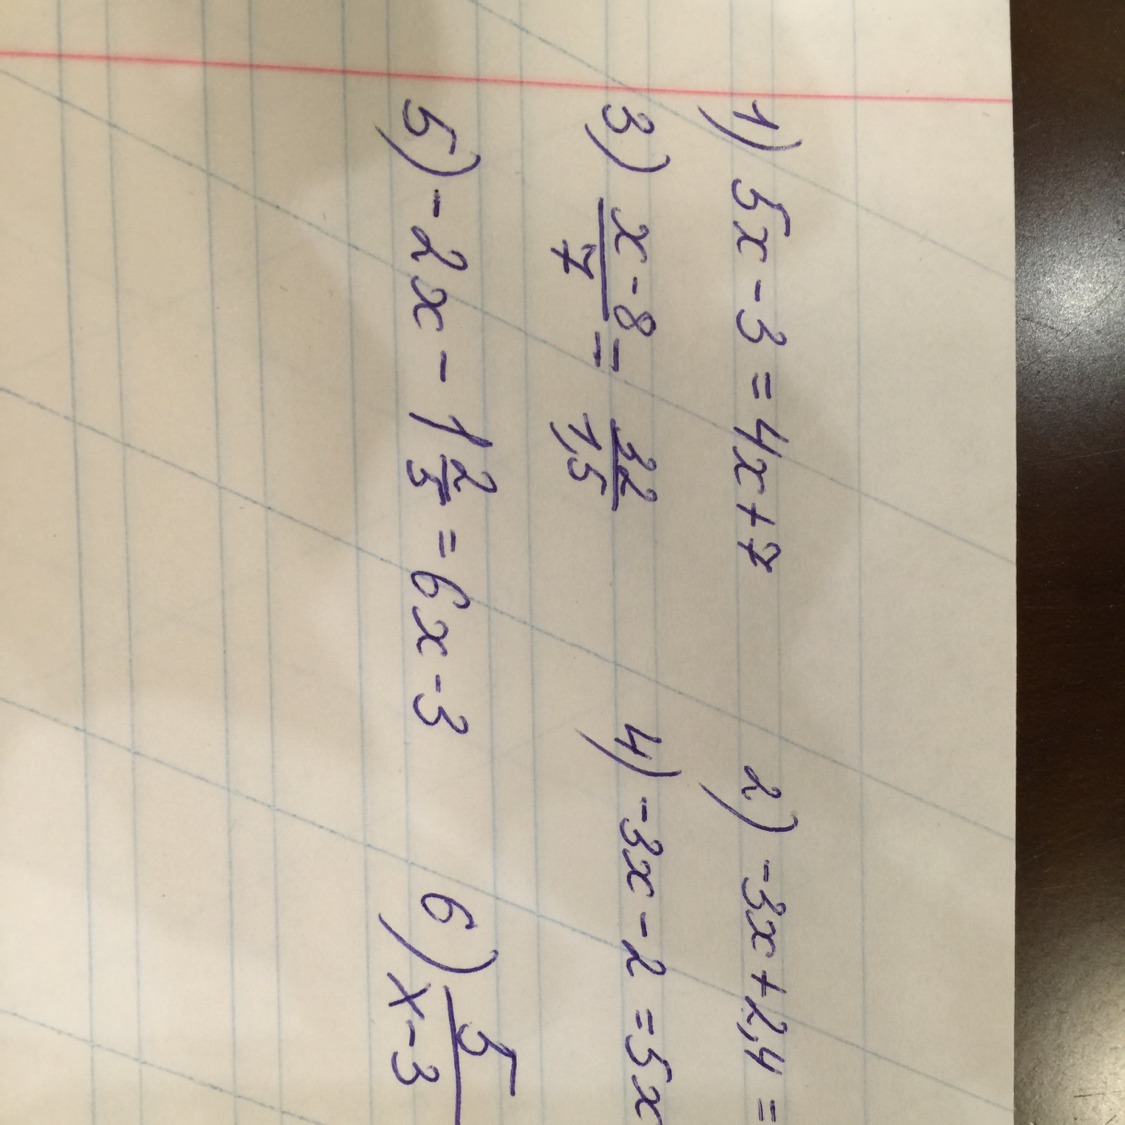 1) 5x - 3 = 4x + 7 2) -3x + 2,4 =
3) x - 8 / 7 = 32 / 1,5 4) -3x - 2 = 5x
5) -2x - 1 2/5 = 6x - 3 6) 5 / x - 3